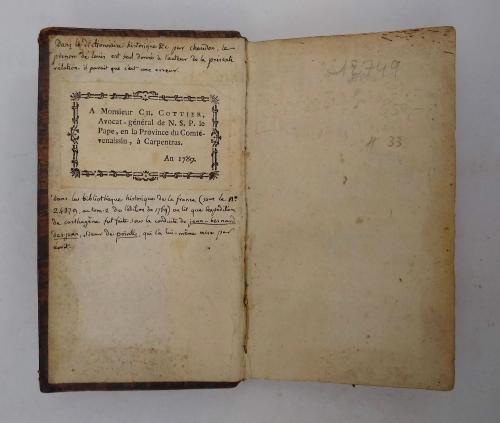 Dans le dictionnaire historique &c. par chaudon, le
prenom de louis est seul donné à l'auteur de la presente
relation. il paroit que c'est une erreur.
A Monsieur Ch. Cottier,
Avocat-général de N. S. P. le
Pape, en la Province du Comté-
venaissin, à Carpentras.
An 1789.
dans la bibliotheque historique de la france (sous le n.º
24879, au tom. 2 de l'édition de 1769) on lit que l'expédition
de carthagène fut faite sous la conduite de jean-bernard
desjean, sieur de pointis, qui l'a lui-même mise par
écrit.
18,749
n 33